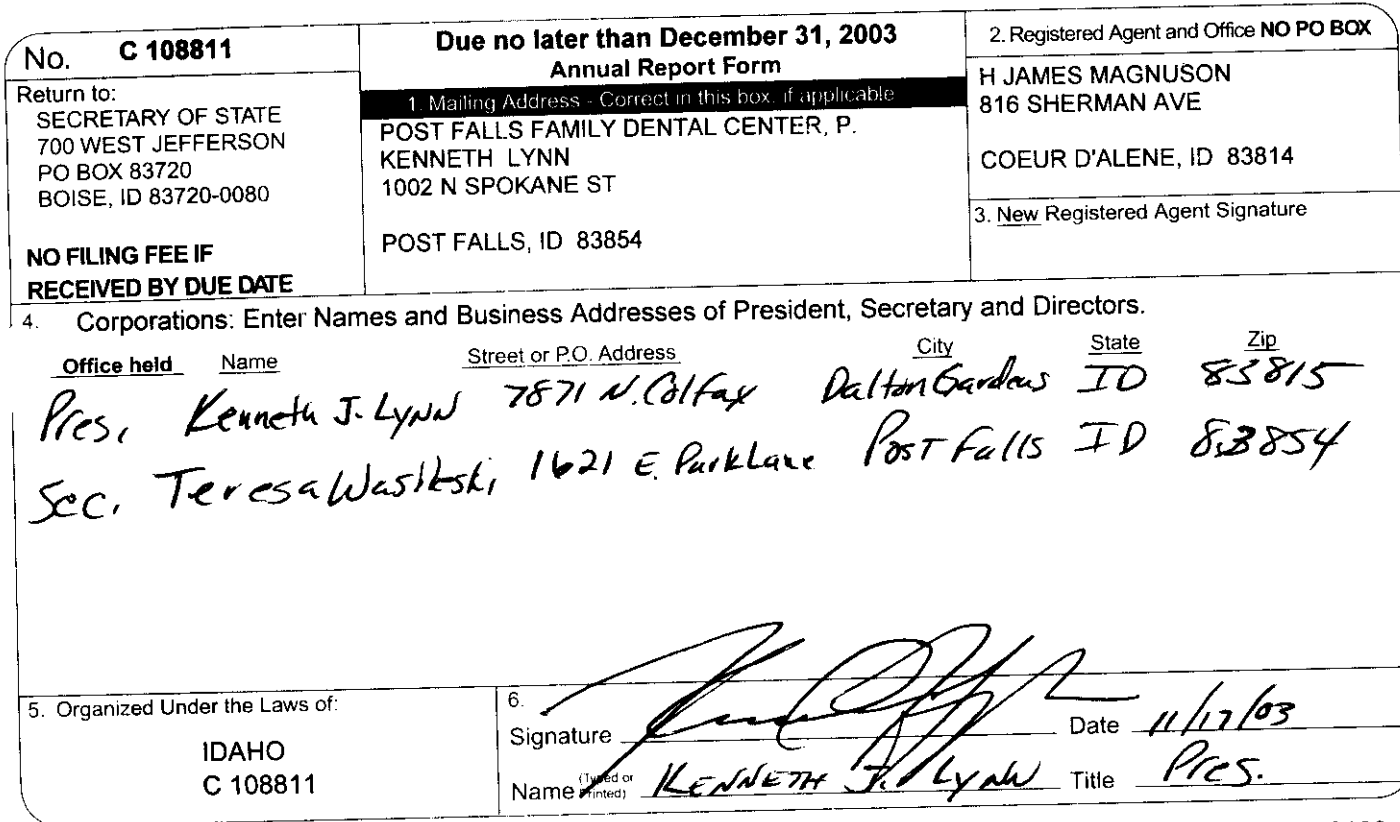 No. C 108811
Return to:
SECRETARY OF STATE
700 WEST JEFFERSON
PO BOX 83720
BOISE, ID 83720-0080
NO FILING FEE IF
RECEIVED BY DUE DATE
Due no later than December 31, 2003
Annual Report Form
1. Mailing Address - Correct in this box, if applicable
POST FALLS FAMILY DENTAL CENTER, P.
KENNETH LYNN
1002 N SPOKANE ST
POST FALLS, ID 83854
2. Registered Agent and Office NO PO BOX
H JAMES MAGNUSON
816 SHERMAN AVE
COEUR D'ALENE, ID 83814
3. New Registered Agent Signature
4. Corporations: Enter Names and Business Addresses of President, Secretary and Directors.
Office held Name Street or P.O. Address City State Zip
Pres. Kenneth J. Lynn 7871 N. Colfax Dalton Gardens ID 83815
Sec. Teresa 1621 E. Park Lane Post Falls ID 83854
5. Organized Under the Laws of:
IDAHO
C 108811
6.
Signature Date 11/17/03
Name (Typed or Printed) KENNETH J. LYNN Title Pres.